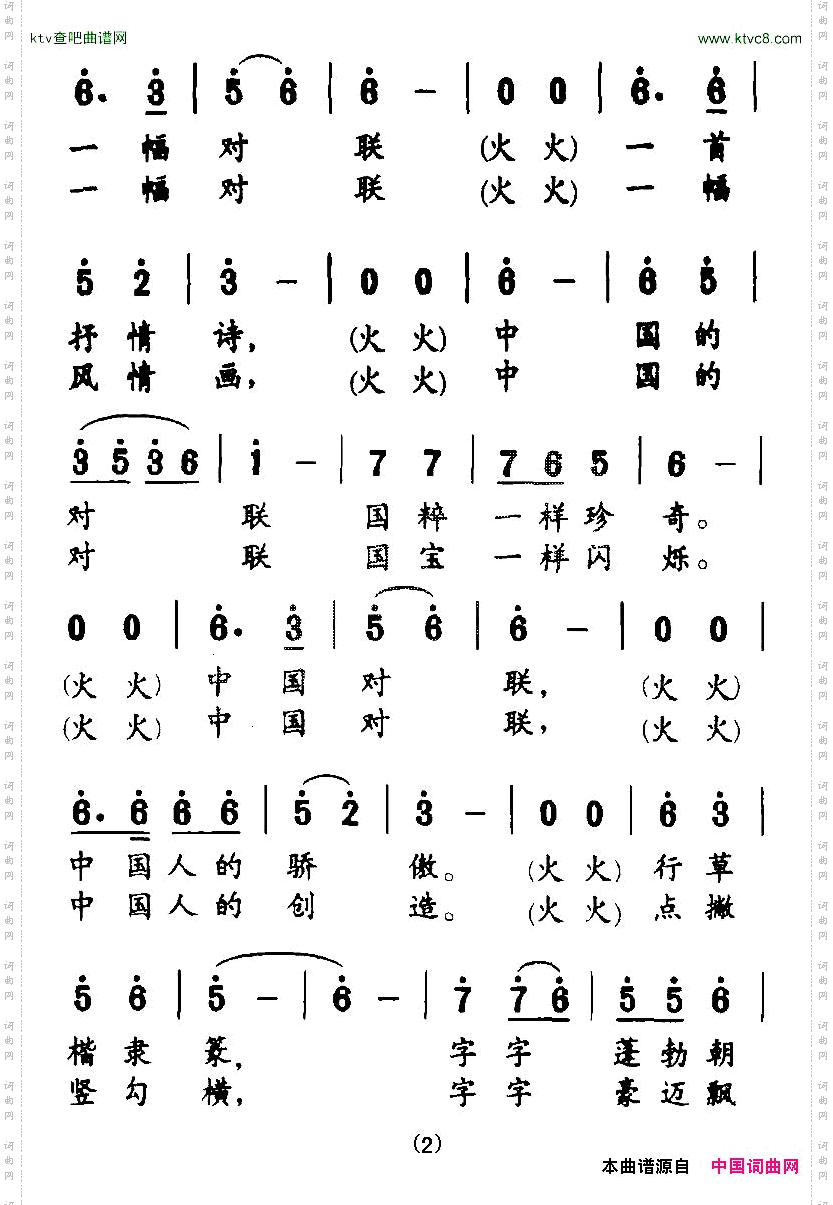 ktv查吧曲谱网 www.ktvc8.com
6. 3 | 5 6 | 6 – | 0 0 | 6. 6 |
一 幅 对 联 (火 火) 一 首
一 幅 对 联 (火 火) 一 幅
5 2 | 3 – | 0 0 | 6 – | 6 5 |
抒 情 诗, (火 火) 中 国 的
风 情 画, (火 火) 中 国 的
3 5 3 6 | 1 – | 7 7 | 7 6 5 | 6 – |
对 联 国 粹 一 样 珍 奇。
对 联 国 宝 一 样 闪 烁。
0 0 | 6. 3 | 5 6 | 6 – | 0 0 |
(火 火) 中 国 对 联, (火 火)
(火 火) 中 国 对 联, (火 火)
6. 6 6 6 | 5 2 | 3 – | 0 0 | 6 3 |
中 国 人 的 骄 傲。 (火 火) 行 草
中 国 人 的 创 造。 (火 火) 点 撇
5 6 | 5 – | 6 – | 7 7 6 | 5 5 6 |
楷 隶 篆, 字 字 蓬 勃 朝
竖 勾 横, 字 字 豪 迈 飘
(2)
本曲谱源自 中国词曲网